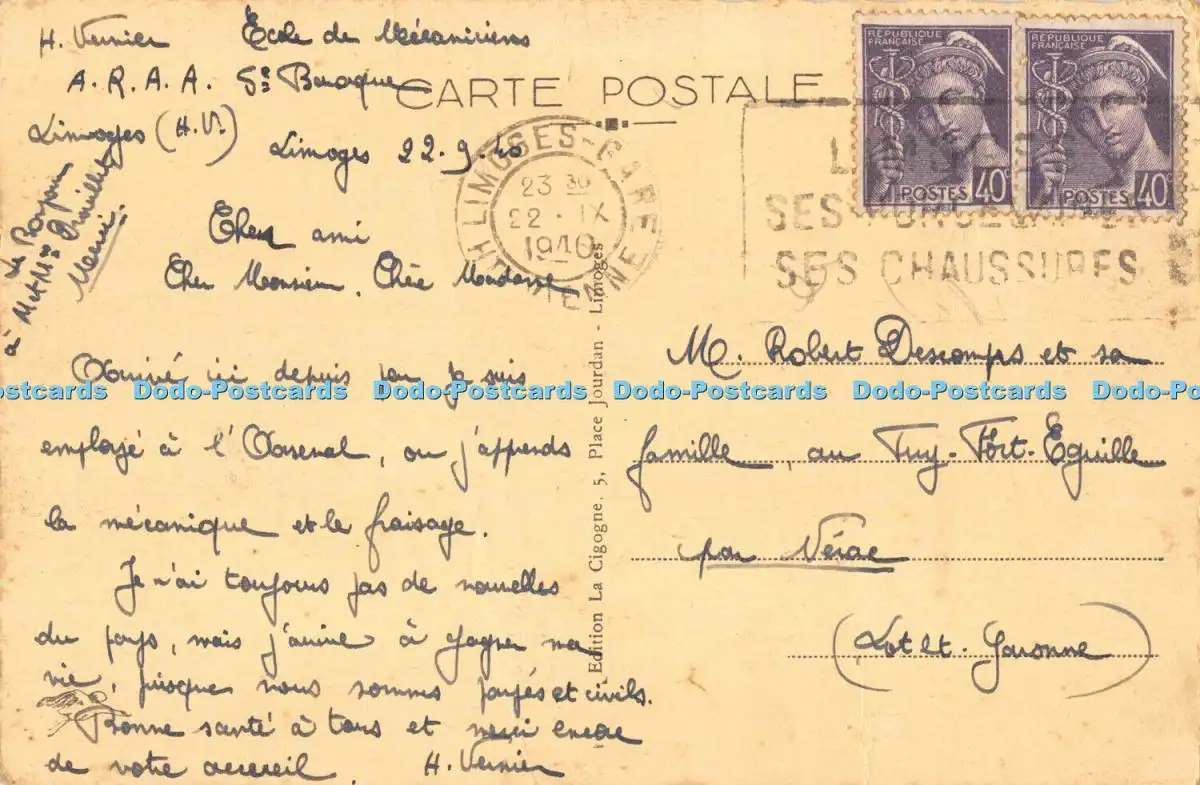 H. Vernier École de Mécaniciens
A.R.A.A. 5e Baraque
Limoges (H.V.)
Limoges 22.9.40
à M et Mme
Merci
Cher ami
Cher Monsieur, Chère Madame
Arrivé ici depuis peu je suis
employé à l'Arsenal, ou j'apprends
la mécanique et le fraisage.
Je n'ai toujours pas de nouvelles
du pays, mais j'arrive à gagner ma
vie, puisque nous sommes payés et civils.
Bonne santé à tous et merci encore
de votre accueil. H. Vernier
CARTE POSTALE
LIMOGES-GARE
23 30
22 · IX
1940
Hte VIENNE
SES
SES CHAUSSURES
RÉPUBLIQUE
FRANÇAISE
POSTES 40c
RÉPUBLIQUE
FRANÇAISE
POSTES 40c
Edition La Cigogne. 5, Place Jourdan - Limoges
M. Robert Descamps et sa
famille, au Puy-Fort-Eguille
par Nérac
(Lot et. Garonne)
Dodo-Postcards Dodo-Postcards Dodo-Postcards Dodo-Postcards Dodo-Po